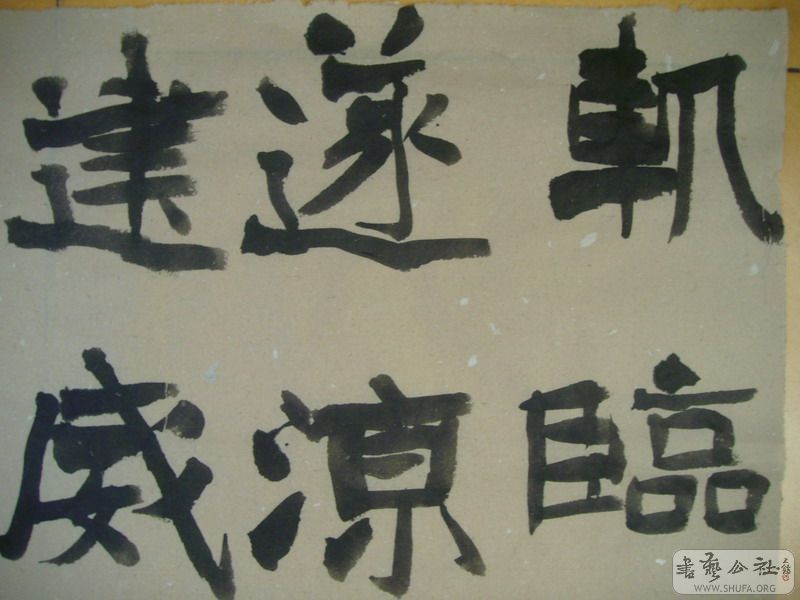 軌臨
遂涼
建威
書藝公社
WWW.SHUFA.ORG